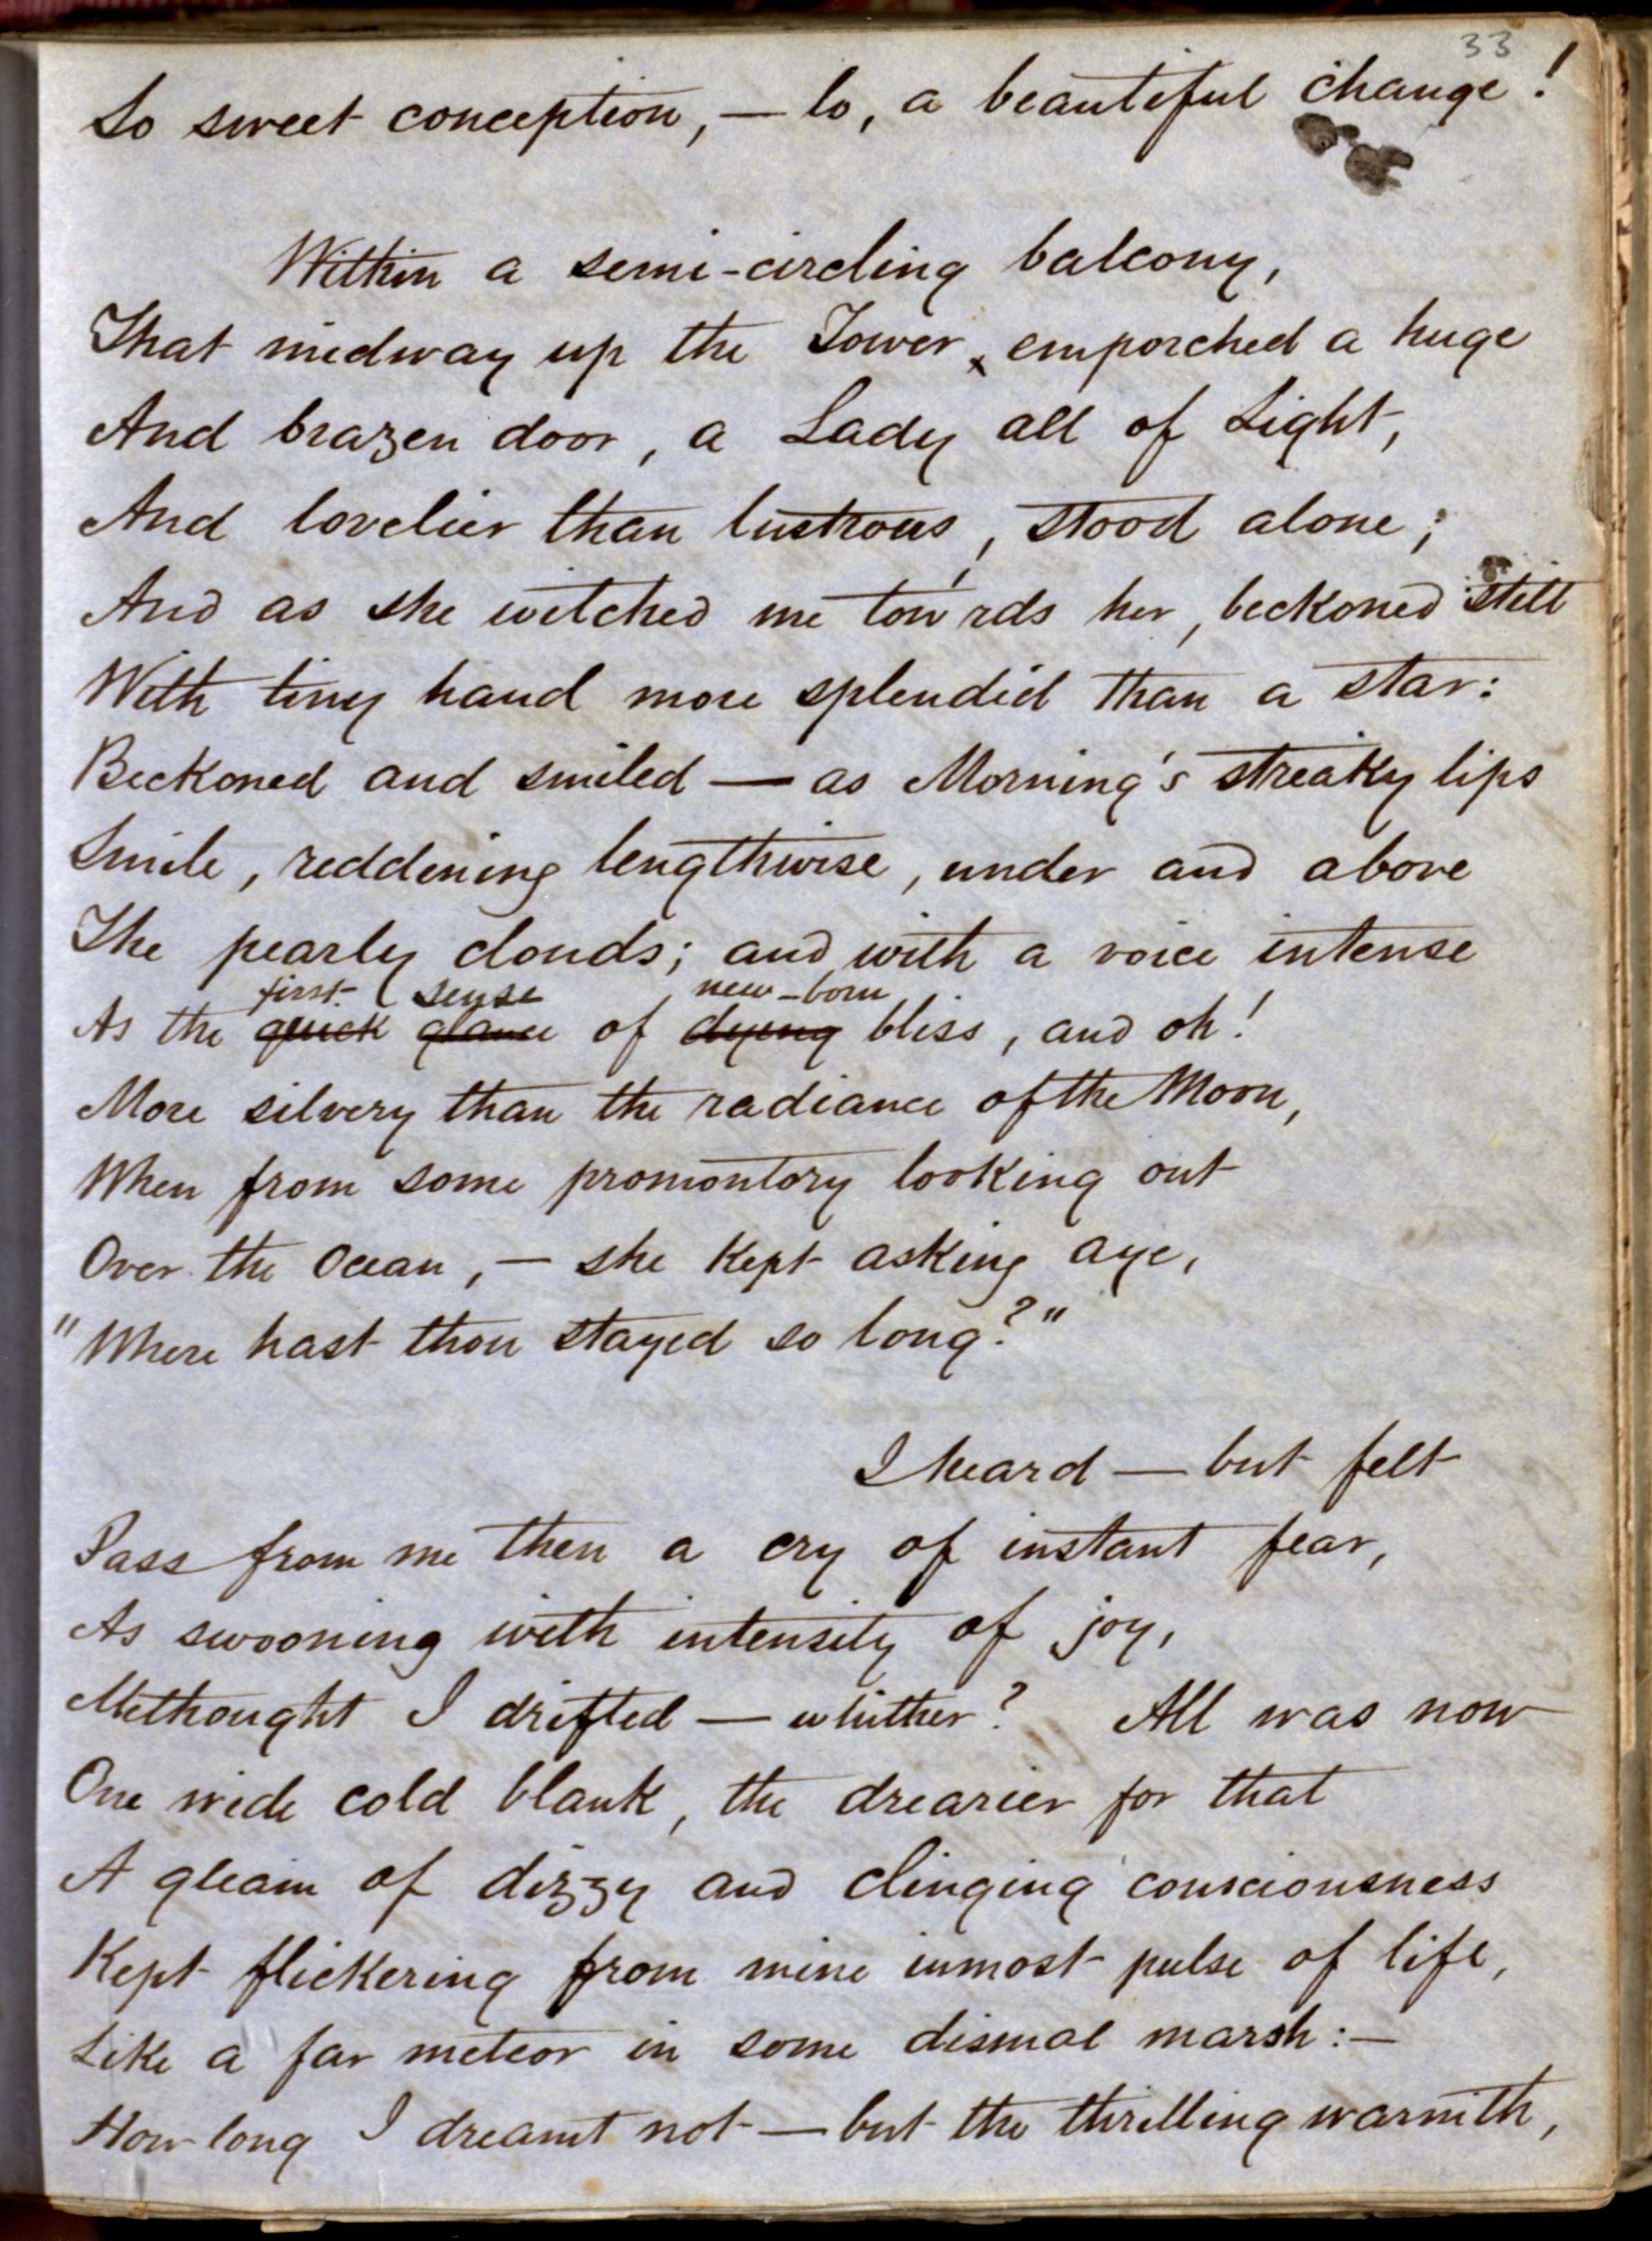 33
So sweet conception, — lo, a beautiful change!
Within a semi-circling balcony,
That midway up the Tower, emporched a huge
And brazen door, a Lady all of Light,
And lovelier than lustrous, stood alone;
And as she witched me tow'rds her, beckoned still
With tiny hand more splendid than a star:
Beckoned and smiled — as Morning's streaky lips
Smile, reddening lengthwise, under and above
The pearly clouds; and with a voice intense
first sense new-born
As the quick glance of dying bliss, and oh!
More silvery than the radiance of the Moon,
When from some promontory looking out
Over the Ocean, — she kept asking aye,
"Where hast thou stayed so long?"
I heard — but felt
Pass from me then a cry of instant fear,
As swooning with intensity of joy,
Methought I drifted — whither? All was now
One wide cold blank, the drearier for that
A gleam of dizzy and clinging consciousness
Kept flickering from mine inmost pulse of life,
Like a far meteor in some dismal marsh: —
How long I dreamt not — but the thrilling warmth,